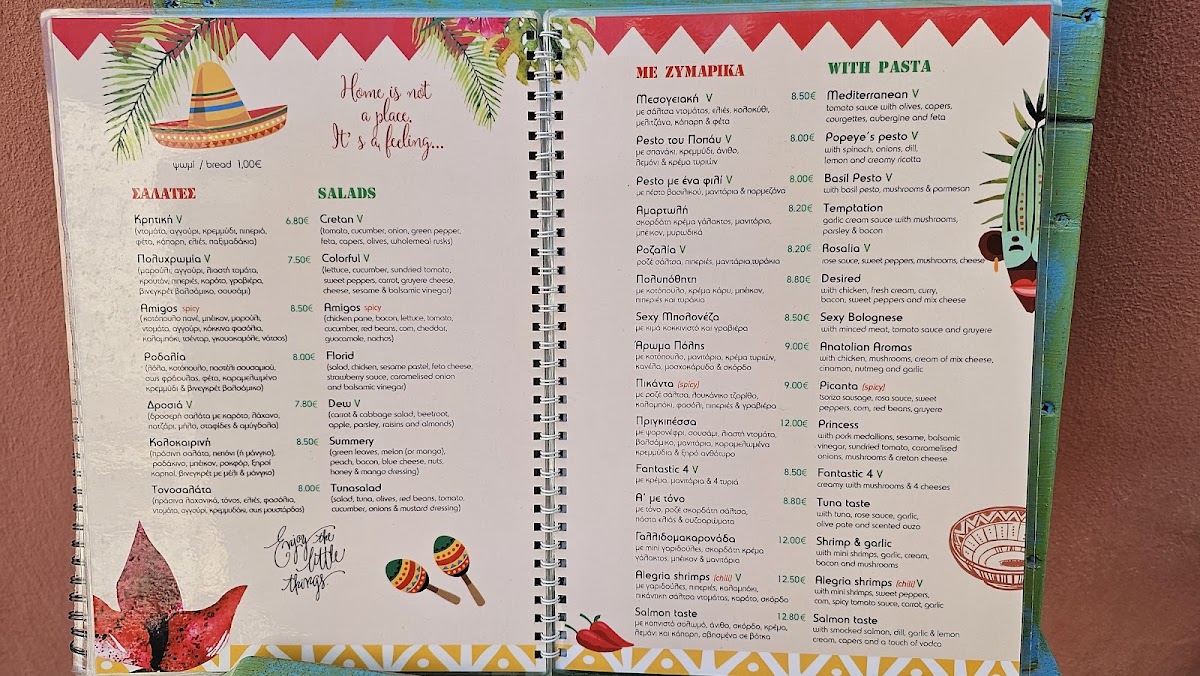 Home is not
a place.
It's a feeling...
ψωμί / bread 1,00€
ΣΑΛΑΤΕΣ
SALADS
Κρητική V
(ντομάτα, αγγούρι, κρεμμύδι, πιπεριά,
φέτα, κάπαρη, ελιές, παξιμαδάκια)
6.80€
Cretan V
(tomato, cucumber, onion, green pepper,
feta, capers, olives, wholemeal rusks)
Πολυχρωμία V
(μαρούλι, αγγούρι, λιαστή τομάτα,
κρουτόν, πιπεριές, καρότο, γραβιέρα,
βινεγκρέτ βαλσάμικο, σουσάμι)
7.50€
Colorful V
(lettuce, cucumber, sundried tomato,
sweet peppers, carrot, gruyere cheese,
cheese, sesame & balsamic vinegar)
Amigos spicy
(κοτόπουλο πανέ, μπέικον, μαρούλι,
ντομάτα, αγγούρι, κόκκινα φασόλια,
καλαμπόκι, τσένταρ, γκουακαμόλε, νάτσος)
8.50€
Amigos spicy
(chicken pane, bacon, lettuce, tomato,
cucumber, red beans, corn, cheddar,
guacamole, nachos)
Ροδαλία
(λόλα, κοτόπουλο, παστέλι σουσαμιού,
σως φράουλας, φέτα, καραμελωμένο
κρεμμύδι & βινεγκρέτ βαλσάμικο)
8.00€
Florid
(salad, chicken, sesame pastel, feta cheese,
strawberry sauce, caramelised onion
and balsamic vinegar)
Δροσιά V
(δροσερή σαλάτα με καρότο, λάχανο,
πατζάρι, μήλο, σταφίδες & αμύγδαλα)
7.80€
Dew V
(carrot & cabbage salad, beetroot,
apple, parsley, raisins and almonds)
Καλοκαιρινή
(πράσινη σαλάτα, πεπόνι (ή μάνγκο),
ροδάκινο, μπέικον, ροκφόρ, ξηροί
καρποί, βινεγκρέτ με μέλι & μάνγκο)
8.50€
Summery
(green leaves, melon (or mango),
peach, bacon, blue cheese, nuts,
honey & mango dressing)
Τονοσαλάτα
(πράσινα λαχανικά, τόνος, ελιές, φασόλια,
ντομάτα, αγγούρι, κρεμμυδάκι, σως μουστάρδας)
8.00€
Tunasalad
(salad, tuna, olives, red beans, tomato,
cucumber, onions & mustard dressing)
Enjoy the
little
things
ΜΕ ΖΥΜΑΡΙΚΑ
WITH PASTA
Μεσογειακή V
με σάλτσα ντομάτας, ελιές, κολοκύθι,
μελιτζάνα, κάπαρη & φέτα
8,50€
Mediterranean V
tomato sauce with olives, capers,
courgettes, aubergine and feta
Pesto του Ποπάυ V
με σπανάκι, κρεμμύδι, άνιθο,
λεμόνι & κρέμα τυριών
8.00€
Popeye's pesto V
with spinach, onions, dill,
lemon and creamy ricotta
Pesto με ένα φιλί V
με πέστο βασιλικού, μανιτάρια & παρμεζάνα
8.00€
Basil Pesto V
with basil pesto, mushrooms & parmeson
Αμαρτωλή
σκορδάτη κρέμα γάλακτος, μανιτάρια,
μπέικον, μυρωδικά
8.20€
Temptation
garlic cream sauce with mushrooms,
parsley & bacon
Ροζαλία V
ροζέ σάλτσα, πιπεριές, μανιτάρια,τυράκια
8.20€
Rosalia V
rose sauce, sweet peppers, mushrooms, cheese
Πολυπόθητη
με κοτόπουλο, κρέμα κάρυ, μπέικον,
πιπεριές και τυράκια
8.80€
Desired
with chicken, fresh cream, curry,
bacon, sweet peppers and mix cheese
Sexy Μπολονέζα
με κιμά κοκκινιστό και γραβιέρα
8.50€
Sexy Bolognese
with minced meat, tomato sauce and gruyere
Άρωμα Πόλης
με κοτόπουλο, μανιτάρια, κρέμα τυριών,
κανέλα, μοσχοκάρυδο & σκόρδο
9.00€
Anatolian Aromas
with chicken, mushrooms, cream of mix cheese,
cinamon, nutmeg and garlic
Πικάντα (spicy)
με ροζέ σάλτσα, λουκάνικο τζορίθο,
καλαμπόκι, φασόλι, πιπεριές & γραβιέρα
9.00€
Picanta (spicy)
tsorizo sausage, rosa sauce, sweet
peppers, corn, red beans, gruyere
Πριγκιπέσσα
με ψαρονέφρι, σουσάμι, λιαστή ντομάτα,
βαλσάμικο, μανιτάρια, καραμελωμένα
κρεμμύδια & ξηρό ανθότυρο
12.00€
Princess
with pork medallions, sesame, balsamic
vinegar, sundried tomato, caramelised
onions, mushrooms & cretan cheese
Fantastic 4 V
με κρέμα, μανιτάρια & 4 τυριά
8.50€
Fantastic 4 V
creamy with mushrooms & 4 cheeses
Α' με τόνο
με τόνο, ροζέ σκορδάτη σάλτσα,
πάστα ελιάς & ουζοαρώματα
8.80€
Tuna taste
with tuna, rose sauce, garlic,
olive pate and scented ouzo
Γαλλιδομακαρονάδα
με mini γαριδούλες, σκορδάτη κρέμα
γάλακτος, μπέικον & μανιτάρια
12.00€
Shrimp & garlic
with mini shrimps, garlic, cream,
bacon and mushrooms
Alegria shrimps (chili) V
με γαριδούλες, πιπεριές, καλαμπόκι,
πικάντικη σάλτσα ντομάτας, καρότο, σκόρδο
12.50€
Alegria shrimps (chili) V
with mini shrimps, sweet peppers,
corn, spicy tomato sauce, carrot, garlic
Salmon taste
με καπνιστό σολωμό, άνιθο, σκόρδο, κρέμα,
λεμόνι και κάπαρη, σβησμένα σε βότκα
12.80€
Salmon taste
with smocked salmon, dill, garlic & lemon
cream, capers and a touch of vodca